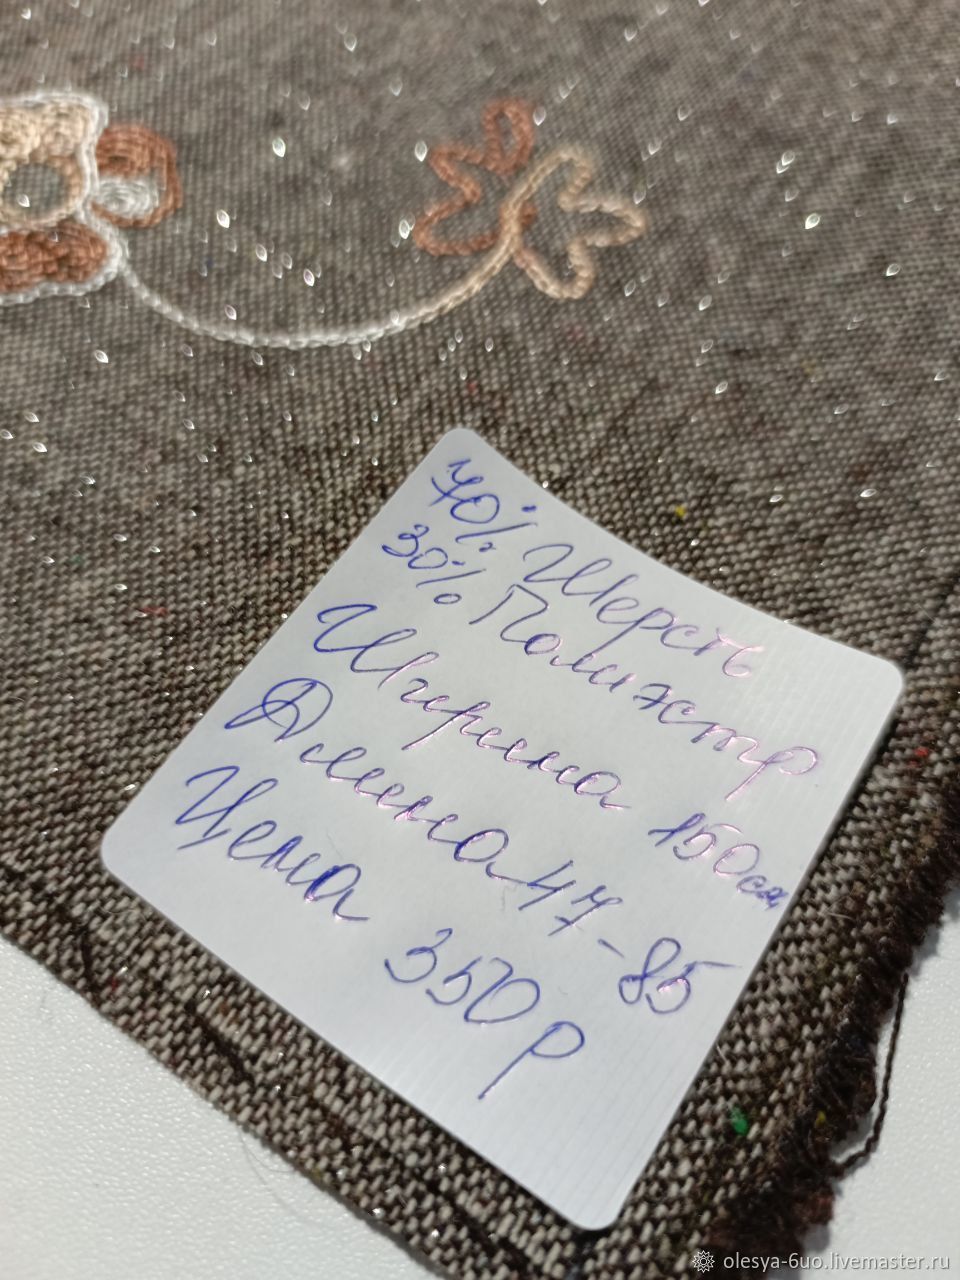 70% Шерсть
30% Полиэстр
Ширина 150см
Длинна 47-85
Цена 350р
olesya-6uo.livemaster.ru